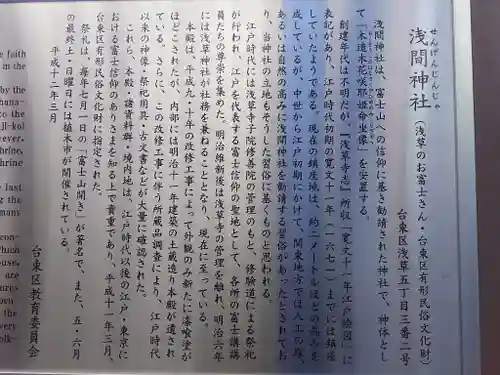 せんげんじんじゃ
浅間神社(浅草のお富士さん・台東区有形民俗文化財)
台東区浅草五丁目三番二号
浅間神社は、富士山への信仰に基き勧請された神社で、神体とし
て「木造木花咲耶姫命坐像」を安置する。
創建年代は不明だが、『浅草寺志』所収「寛文十一年江戸絵図」に
表記があり、江戸時代初期の寛文十一年(一六七一)までには鎮座
していたようである。現在の鎮座地は、約二メートルほどの高みを
成しているが、中世から江戸初期にかけて、関東地方では人工の塚、
あるいは自然の高みに浅間神社を勧請する習俗があったとされてお
り、当神社の立地もそうした習俗に基くものと思われる。
江戸時代には浅草寺子院修善院の管理のもと、修験道による祭祀
が行われ、江戸を代表する富士信仰の聖地として、各所の富士講講
員たちの尊崇を集めた。明治維新後は浅草寺の管理を離れ、明治六年
には浅草神社が社務を兼ねることとなり、現在に至っている。
本殿は、平成九・十年の改修工事によって外観のみ新たに漆喰塗が
ほどこされたが、内部には明治十一年建築の土蔵造り本殿が遺され
ている。さらに、この改修工事に伴う所蔵品調査により、江戸時代
以来の神像、祭祀用具・古文書などが大量に確認された。
これら、本殿・諸資料群・境内地は、江戸時代以後の江戸・東京に
おける富士信仰のありさまを知る上で貴重であり、平成十一年三月、
台東区有形民俗文化財に指定された。
祭礼は、毎年七月一日の「富士山開き」が著名で、また、五・六月
の最終土・日曜日には植木市が開催されている。
平成十二年三月
台東区教育委員会